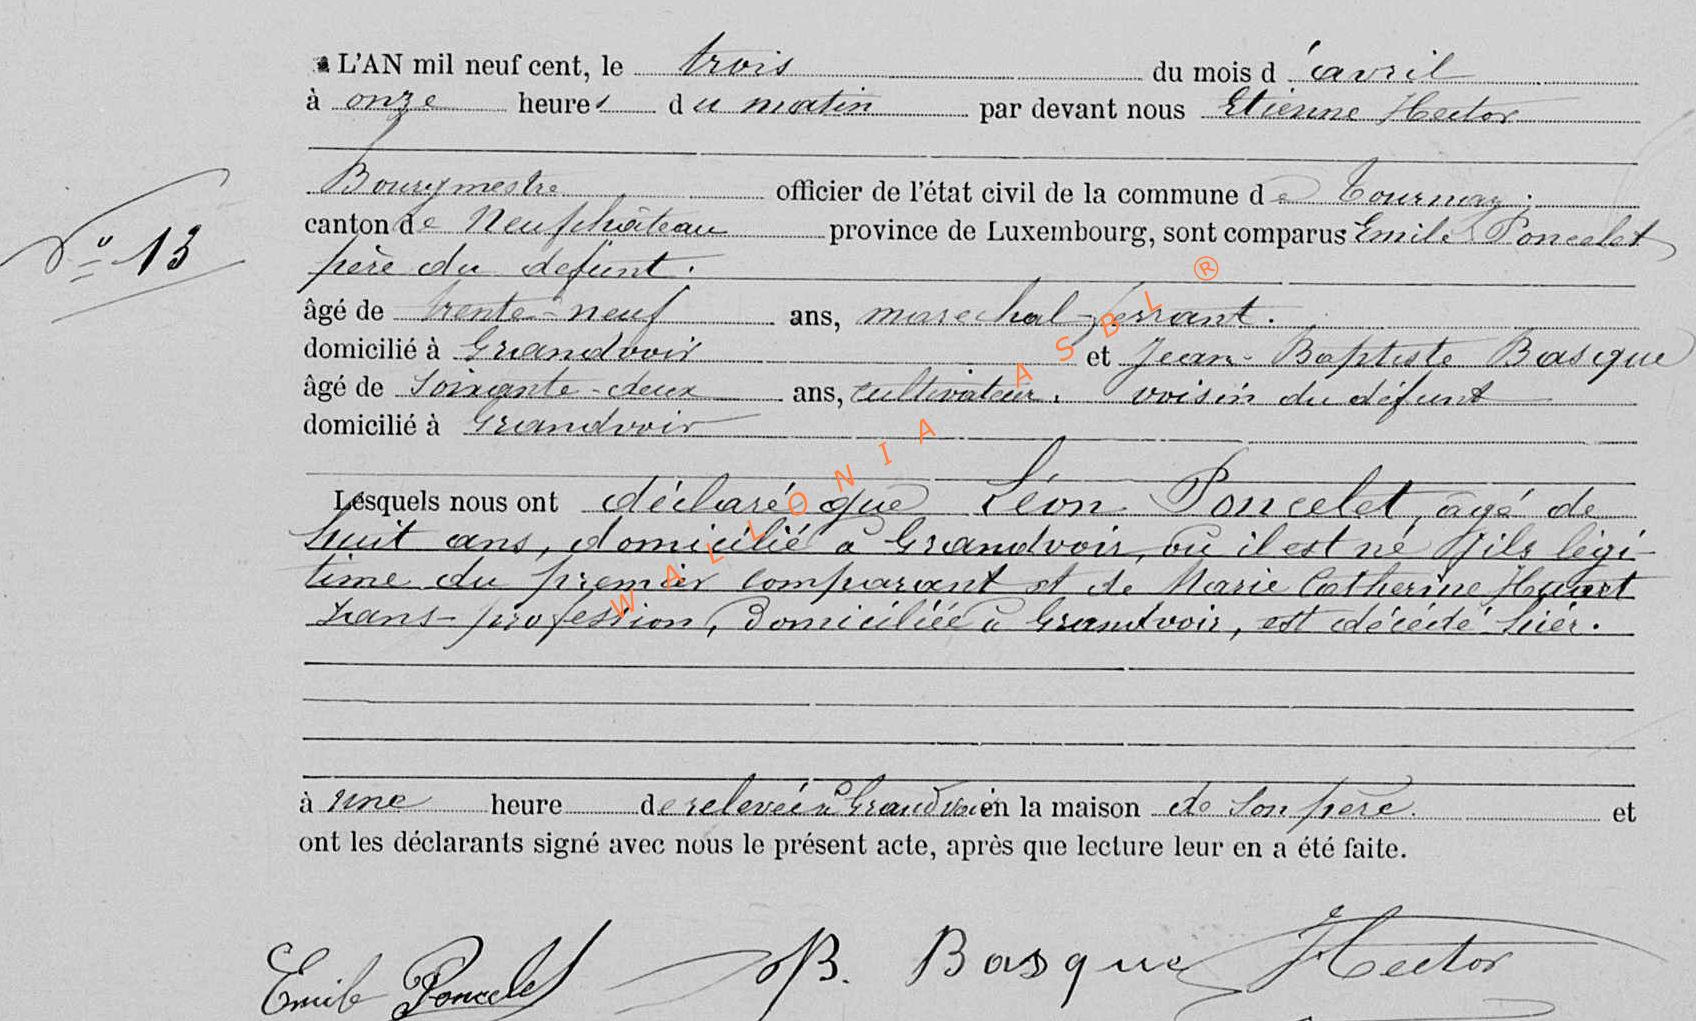 L'AN mil neuf cent, le trois du mois d'avril
à onze heures du matin par devant nous Etienne Hector
Bourgmestre officier de l'état civil de la commune de Tournay,
canton de Neufchâteau province de Luxembourg, sont comparus Emile Poncelet
N° 13
père du défunt.
âgé de trente-neuf ans, maréchal-ferrant.
domicilié à Grandvoir et Jean-Baptiste Basque
âgé de soixante-deux ans, cultivateur, voisin du défunt
domicilié à Grandvoir
Lesquels nous ont déclaré que Léon Poncelet, âgé de
huit ans, domicilié à Grandvoir, où il est né, fils légi-
time du premier comparant et de Marie Catherine
sans profession, Domiciliée à Grandvoir, est décédé hier.
à une heure de relevée à Grandvoir en la maison de son père. et
ont les déclarants signé avec nous le présent acte, après que lecture leur en a été faite.
Emile Poncelet JB. Basque Hector
WALLONIA ASBL ®